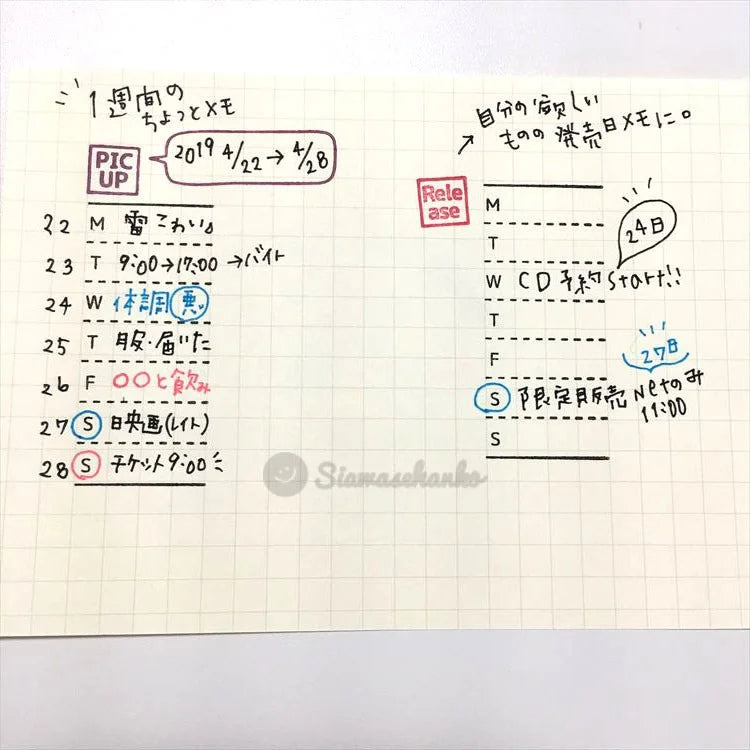 1週間の
ちょっとメモ
PIC
UP
2019 4/22→4/28
22 M 雷こわい。
23 T 9:00→17:00 →バイト
24 W 体調悪い
25 T 服・届いた
26 F 〇〇と飲み
27 S 映画(レイト)
28 S チケット9:00
自分の欲しい
ものの発売日メモに。
Rele
ase
M
T
24日
W CD予約Start!!
T
F
27日
S 限定販売 Netのみ
11:00
S
Siawasehanko